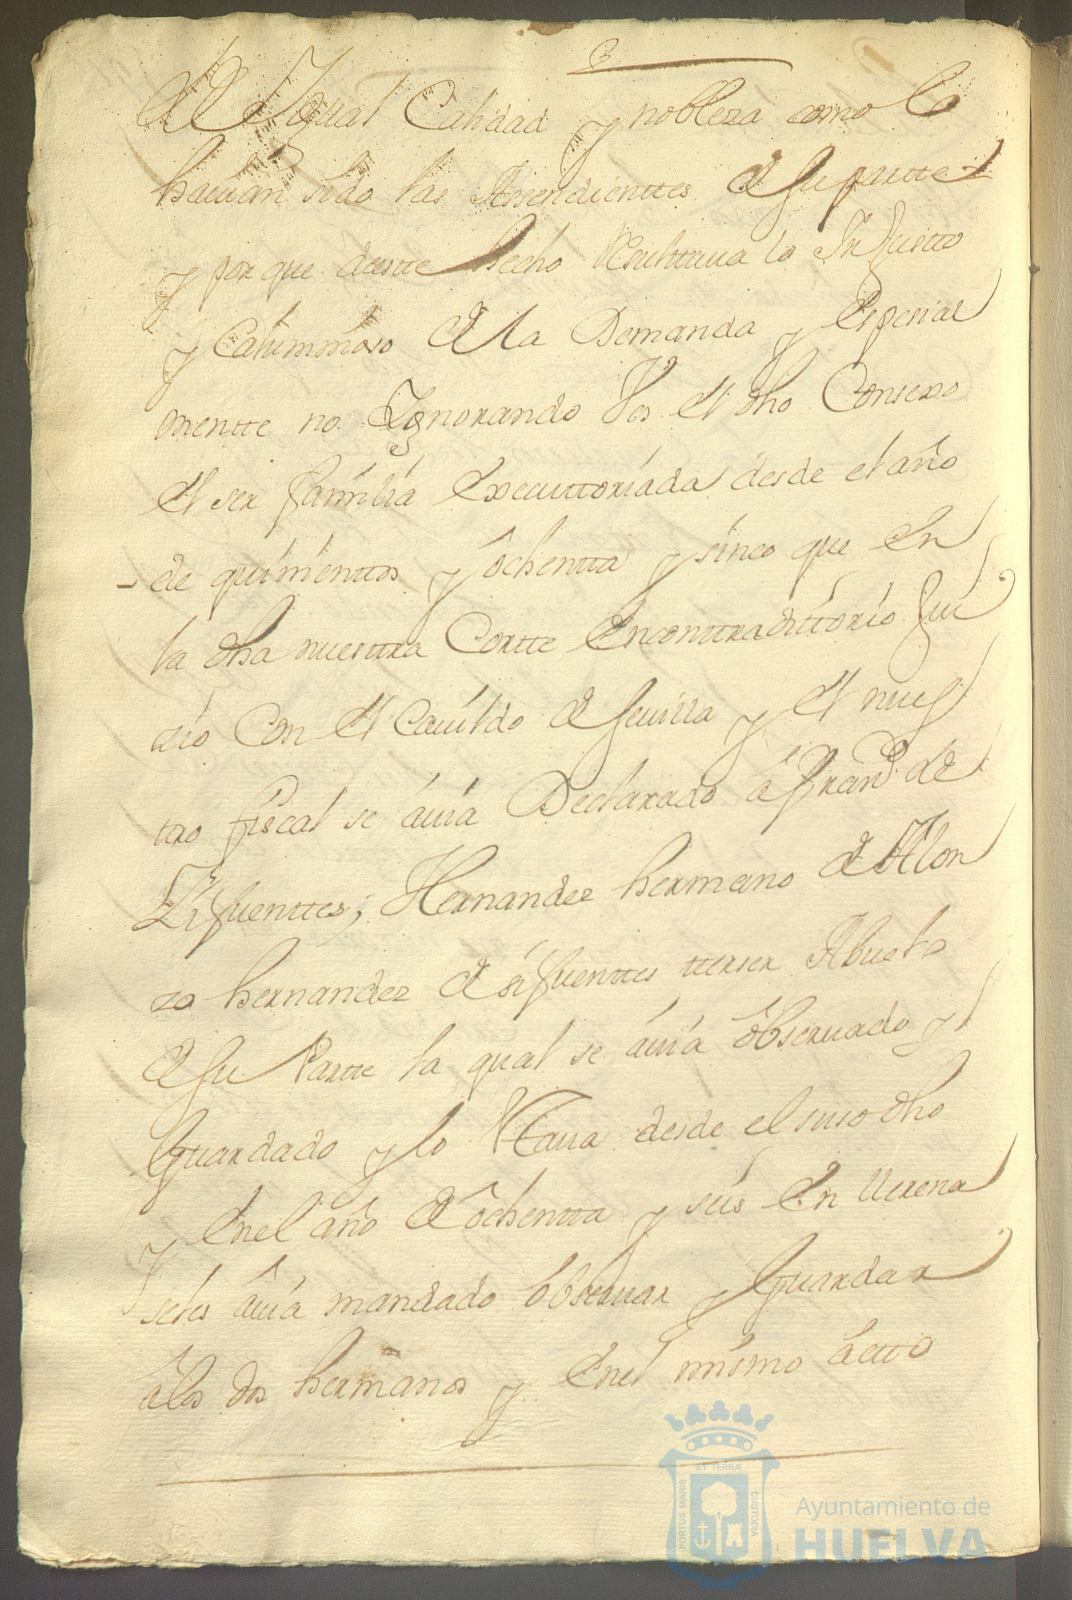 de Ygual Calidad y nobleza como lo
hauian sido los Asendienttes de su partte
y por que deeste hecho Resulttaua lo Injustto
y Calumnioso de la Demanda y Espesial
mentte no Ygnorando Vos el dho Consexo
el ser familia Executtoriada desde el año
de quinienttos y ôchentta y sinco que En
la dha nuesttra Cortte Encontradittorio Jui
sio Con el Cauildo de Seuilla y el nues
tro fiscal se âuia Declarado â Fran.co de
Sifuenttes, Hernandez hermano de Alon
zo hernandez de sifuenttes terser Abuelo
de su Partte la qual se âuia ôbseruado y
Guardado y lo Estaua desde el suso dho
y Enel año de ôchentta y seis En Uerena
seles âuia mandado ôbseruar y Guardar
âlos dos hermanos y Enel mismo âctto
PORTUS MARIS ET TERRÆ CUSTODIA
Ayuntamiento de
HUELVA